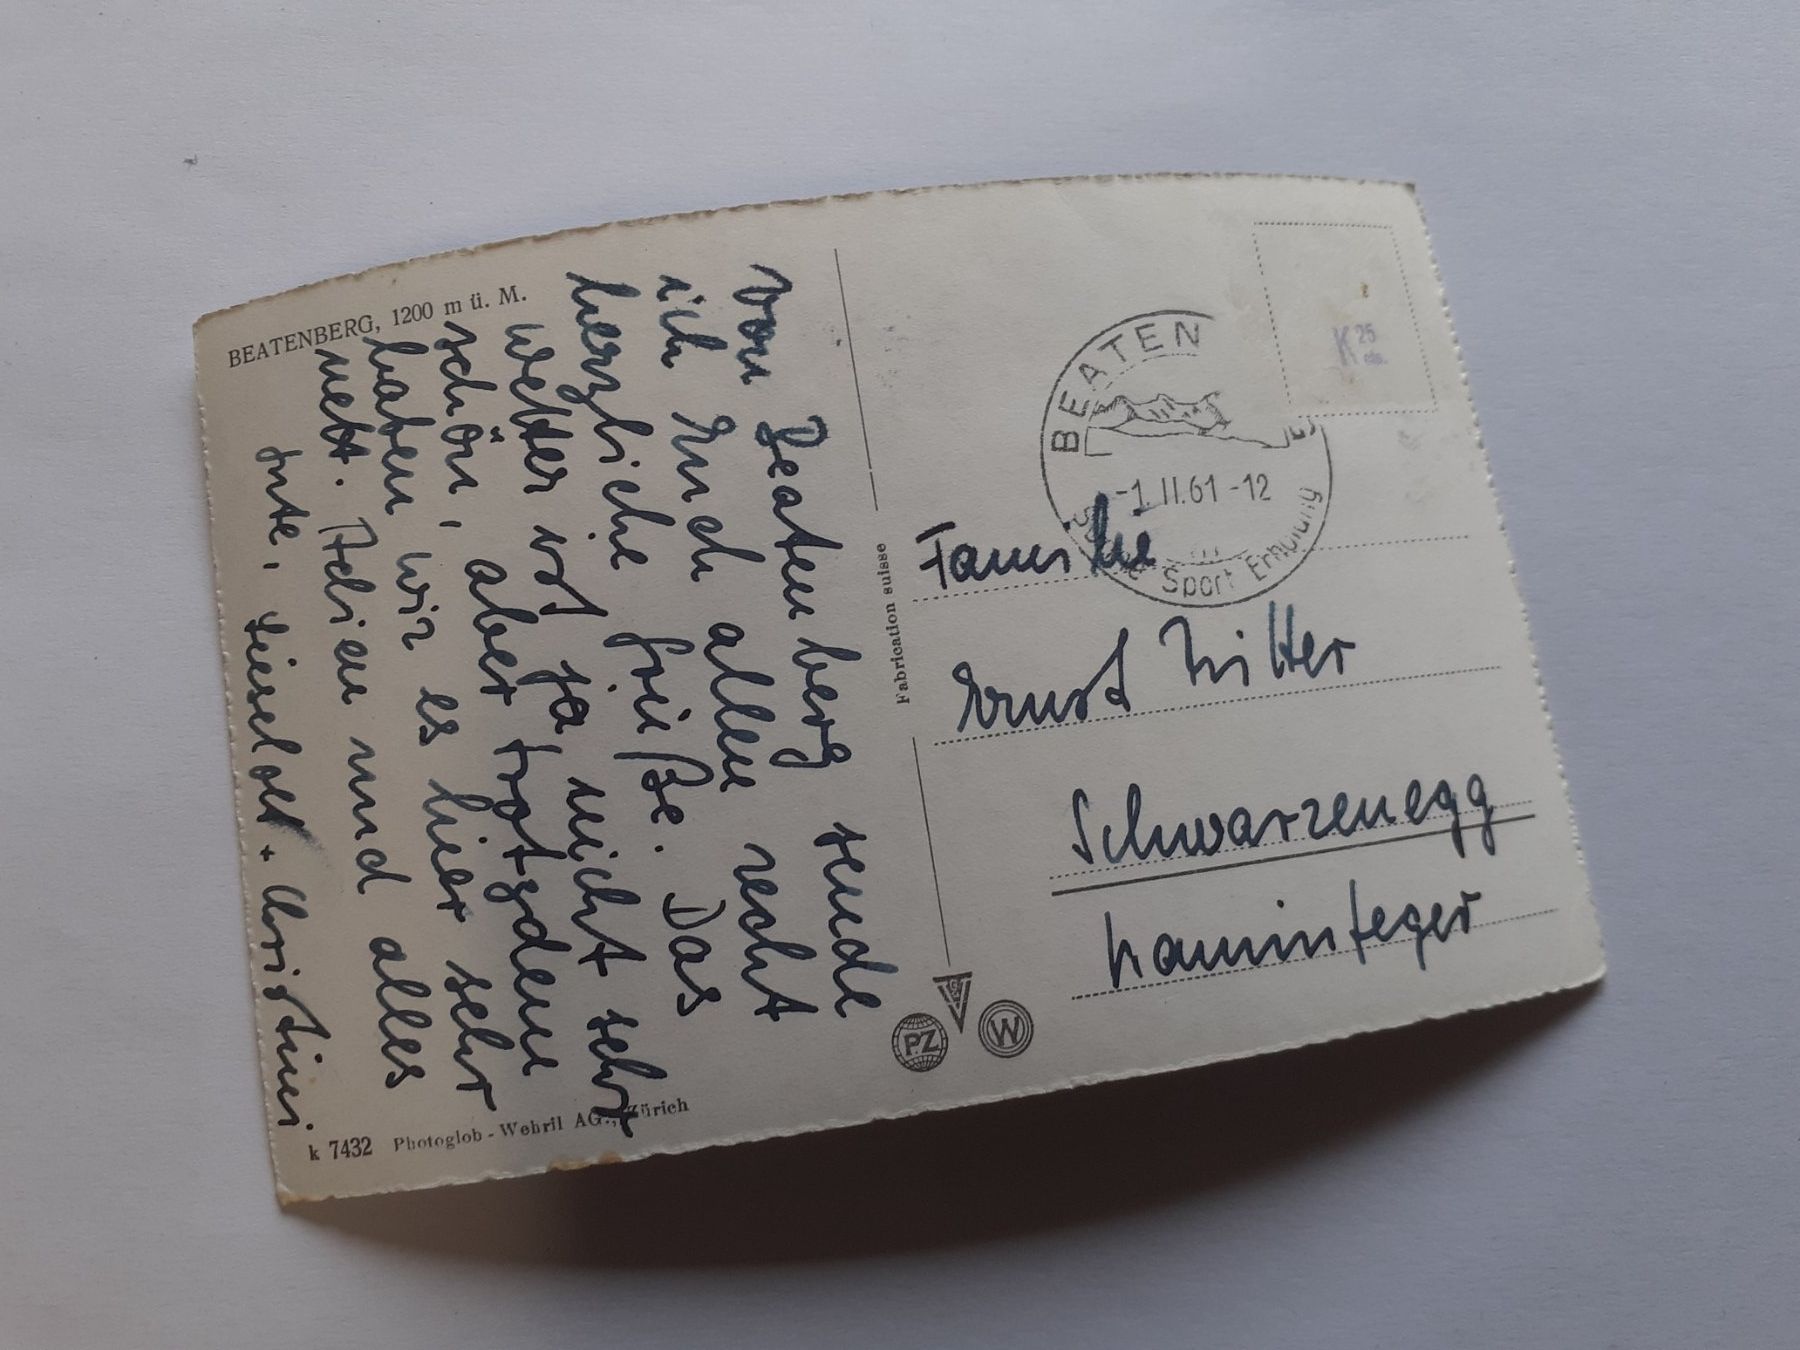 BEATENBERG, 1200 m ü. M.
Von Beatenberg sende
ich Euch allen recht
herzliche Grüße. Das
Wetter ist ja nicht sehr
schön, aber trotzdem
haben wir es hier sehr
nett. Adieu und alles
Gute, Liselott + Christini
k 7432 Photoglob - Wehrli AG., Zürich
Fabrication suisse
PZ
W
K 25 cts.
BEATEN
-1. II. 61 -12
Sport Erholung
Familie
Ernst Ritter
Schwarzenegg
Kaminfeger